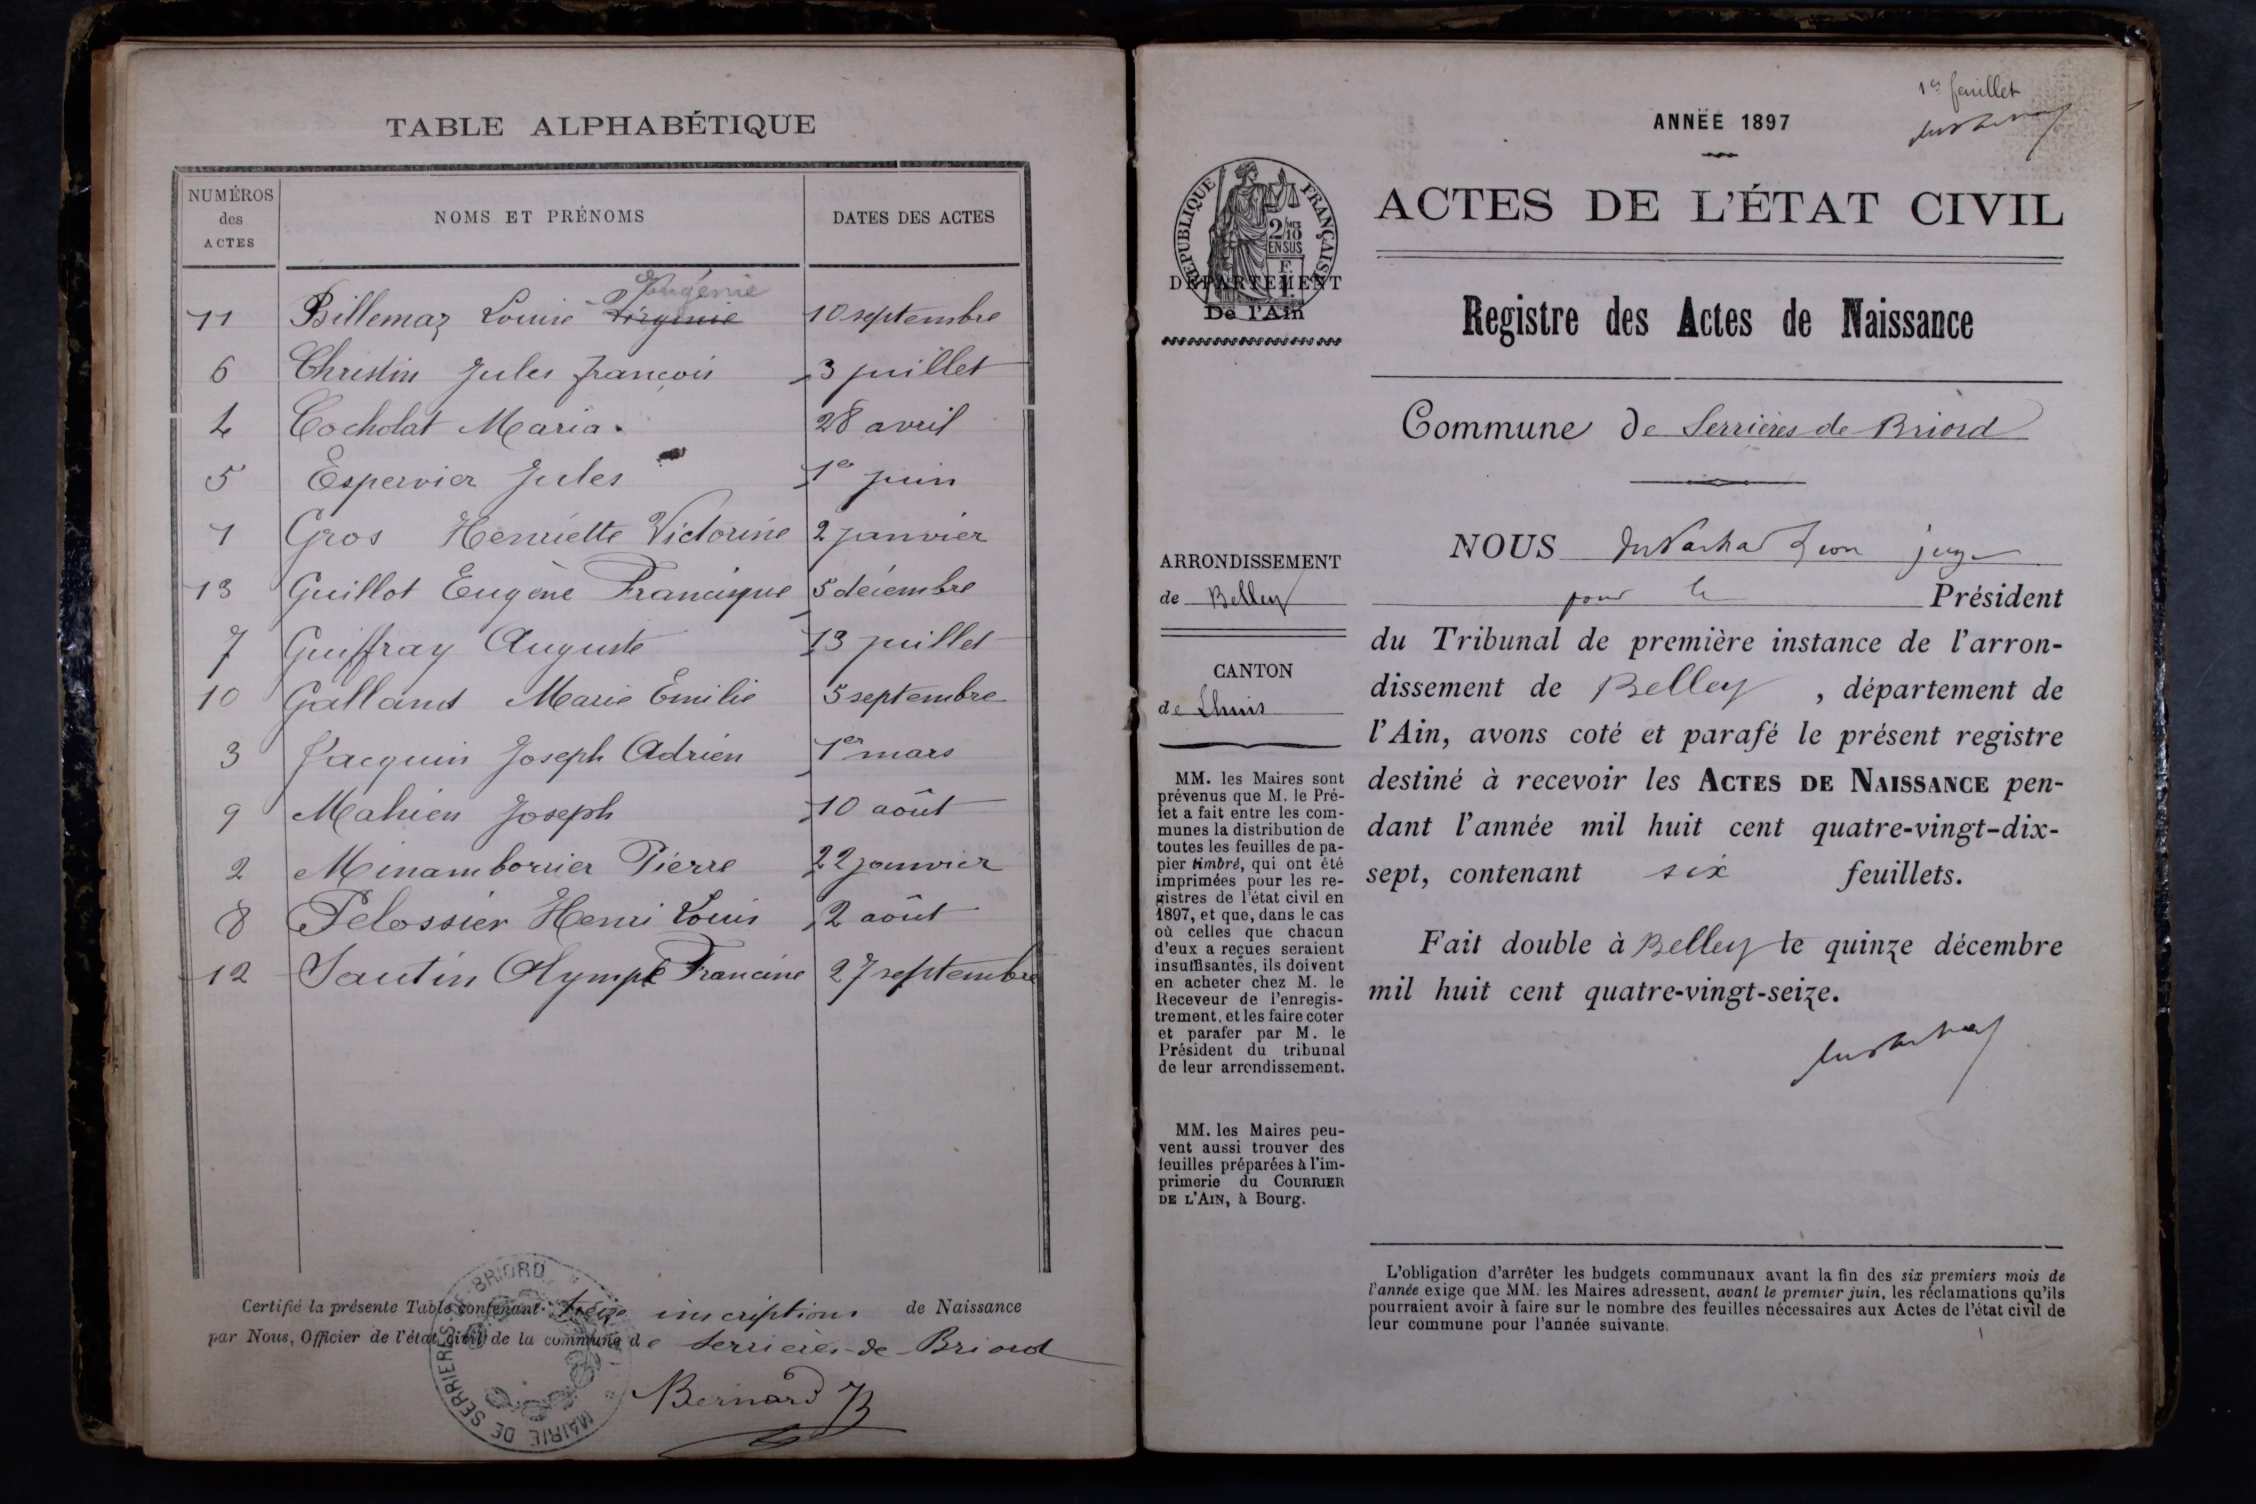 TABLE ALPHABÉTIQUE
NUMÉROS des ACTES
NOMS ET PRÉNOMS
DATES DES ACTES
Eugénie
11 Billemaz Louise Virginie 10 septembre
6 Christin Jules françois 3 juillet
4 Cocholat Maria. 28 avril
5 Espervier Jules 1er juin
1 Gros Henriette Victorine 2 janvier
13 Guillot Eugène Francisque 5 décembre
7 Guiffray Auguste 13 juillet
10 Galland Marie Emilie 5 septembre
3 Jacquin Joseph Adrien 1er mars
9 Mahieu Joseph 10 août
2 Minambornier Pierre 22 janvier
8 Pelossier Henri Louis 2 août
12 Sautin Olympe Francine 27 septembre
Certifié la présente Table contenant treize inscriptions de Naissance
par Nous, Officier de l'état civil de la commune de Serrières-de Briord
MAIRIE DE SERRIERES DE BRIORD
Bernard
1er feuillet
ANNÉE 1897
RÉPUBLIQUE FRANÇAISE
2/10 EN SUS
DÉPARTEMENT
De l'Ain
ACTES DE L'ÉTAT CIVIL
Registre des Actes de Naissance
Commune de Serrières de Briord
ARRONDISSEMENT
de Belley
CANTON
de Lhuis
MM. les Maires sont
prévenus que M. le Pré-
fet a fait entre les com-
munes la distribution de
toutes les feuilles de pa-
pier timbré, qui ont été
imprimées pour les re-
gistres de l'état civil en
1897, et que, dans le cas
où celles que chacun
d'eux a reçues seraient
insuffisantes, ils doivent
en acheter chez M. le
Receveur de l'enregis-
trement, et les faire coter
et parafer par M. le
Président du tribunal
de leur arrondissement.
MM. les Maires peu-
vent aussi trouver des
feuilles préparées à l'im-
primerie du COURRIER
DE L'AIN, à Bourg.
NOUS Léon juge
pour le Président
du Tribunal de première instance de l'arron-
dissement de Belley, département de
l'Ain, avons coté et parafé le présent registre
destiné à recevoir les ACTES DE NAISSANCE pen-
dant l'année mil huit cent quatre-vingt-dix-
sept, contenant six feuillets.
Fait double à Belley le quinze décembre
mil huit cent quatre-vingt-seize.
L'obligation d'arrêter les budgets communaux avant la fin des six premiers mois de
l'année exige que MM. les Maires adressent, avant le premier juin, les réclamations qu'ils
pourraient avoir à faire sur le nombre des feuilles nécessaires aux Actes de l'état civil de
leur commune pour l'année suivante.